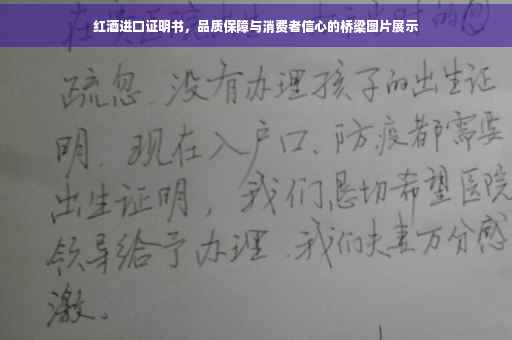 红酒进口证明书，品质保障与消费者信心的桥梁图片展示
疏忽、没有办理孩子的出生证
明、现在入户口、防疫都需要
出生证明，我们恳切希望医院
领导给予办理、我们夫妻万分感
激。